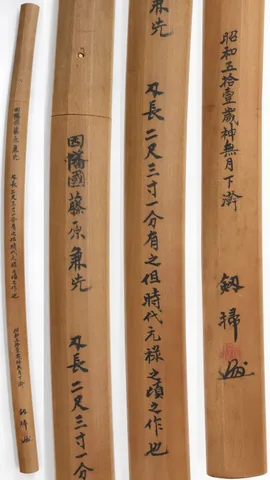 因幡國藤原兼先 刄長二尺三寸一分有之但時代元禄之頃之作也 昭和五拾壹歳神無月下澣 劔掃
因幡國藤原兼先 刄長二尺三寸一分
先 刄長二尺三寸一分有之但時代元禄之頃之作也
昭和五拾壹歳神無月下澣 劔掃